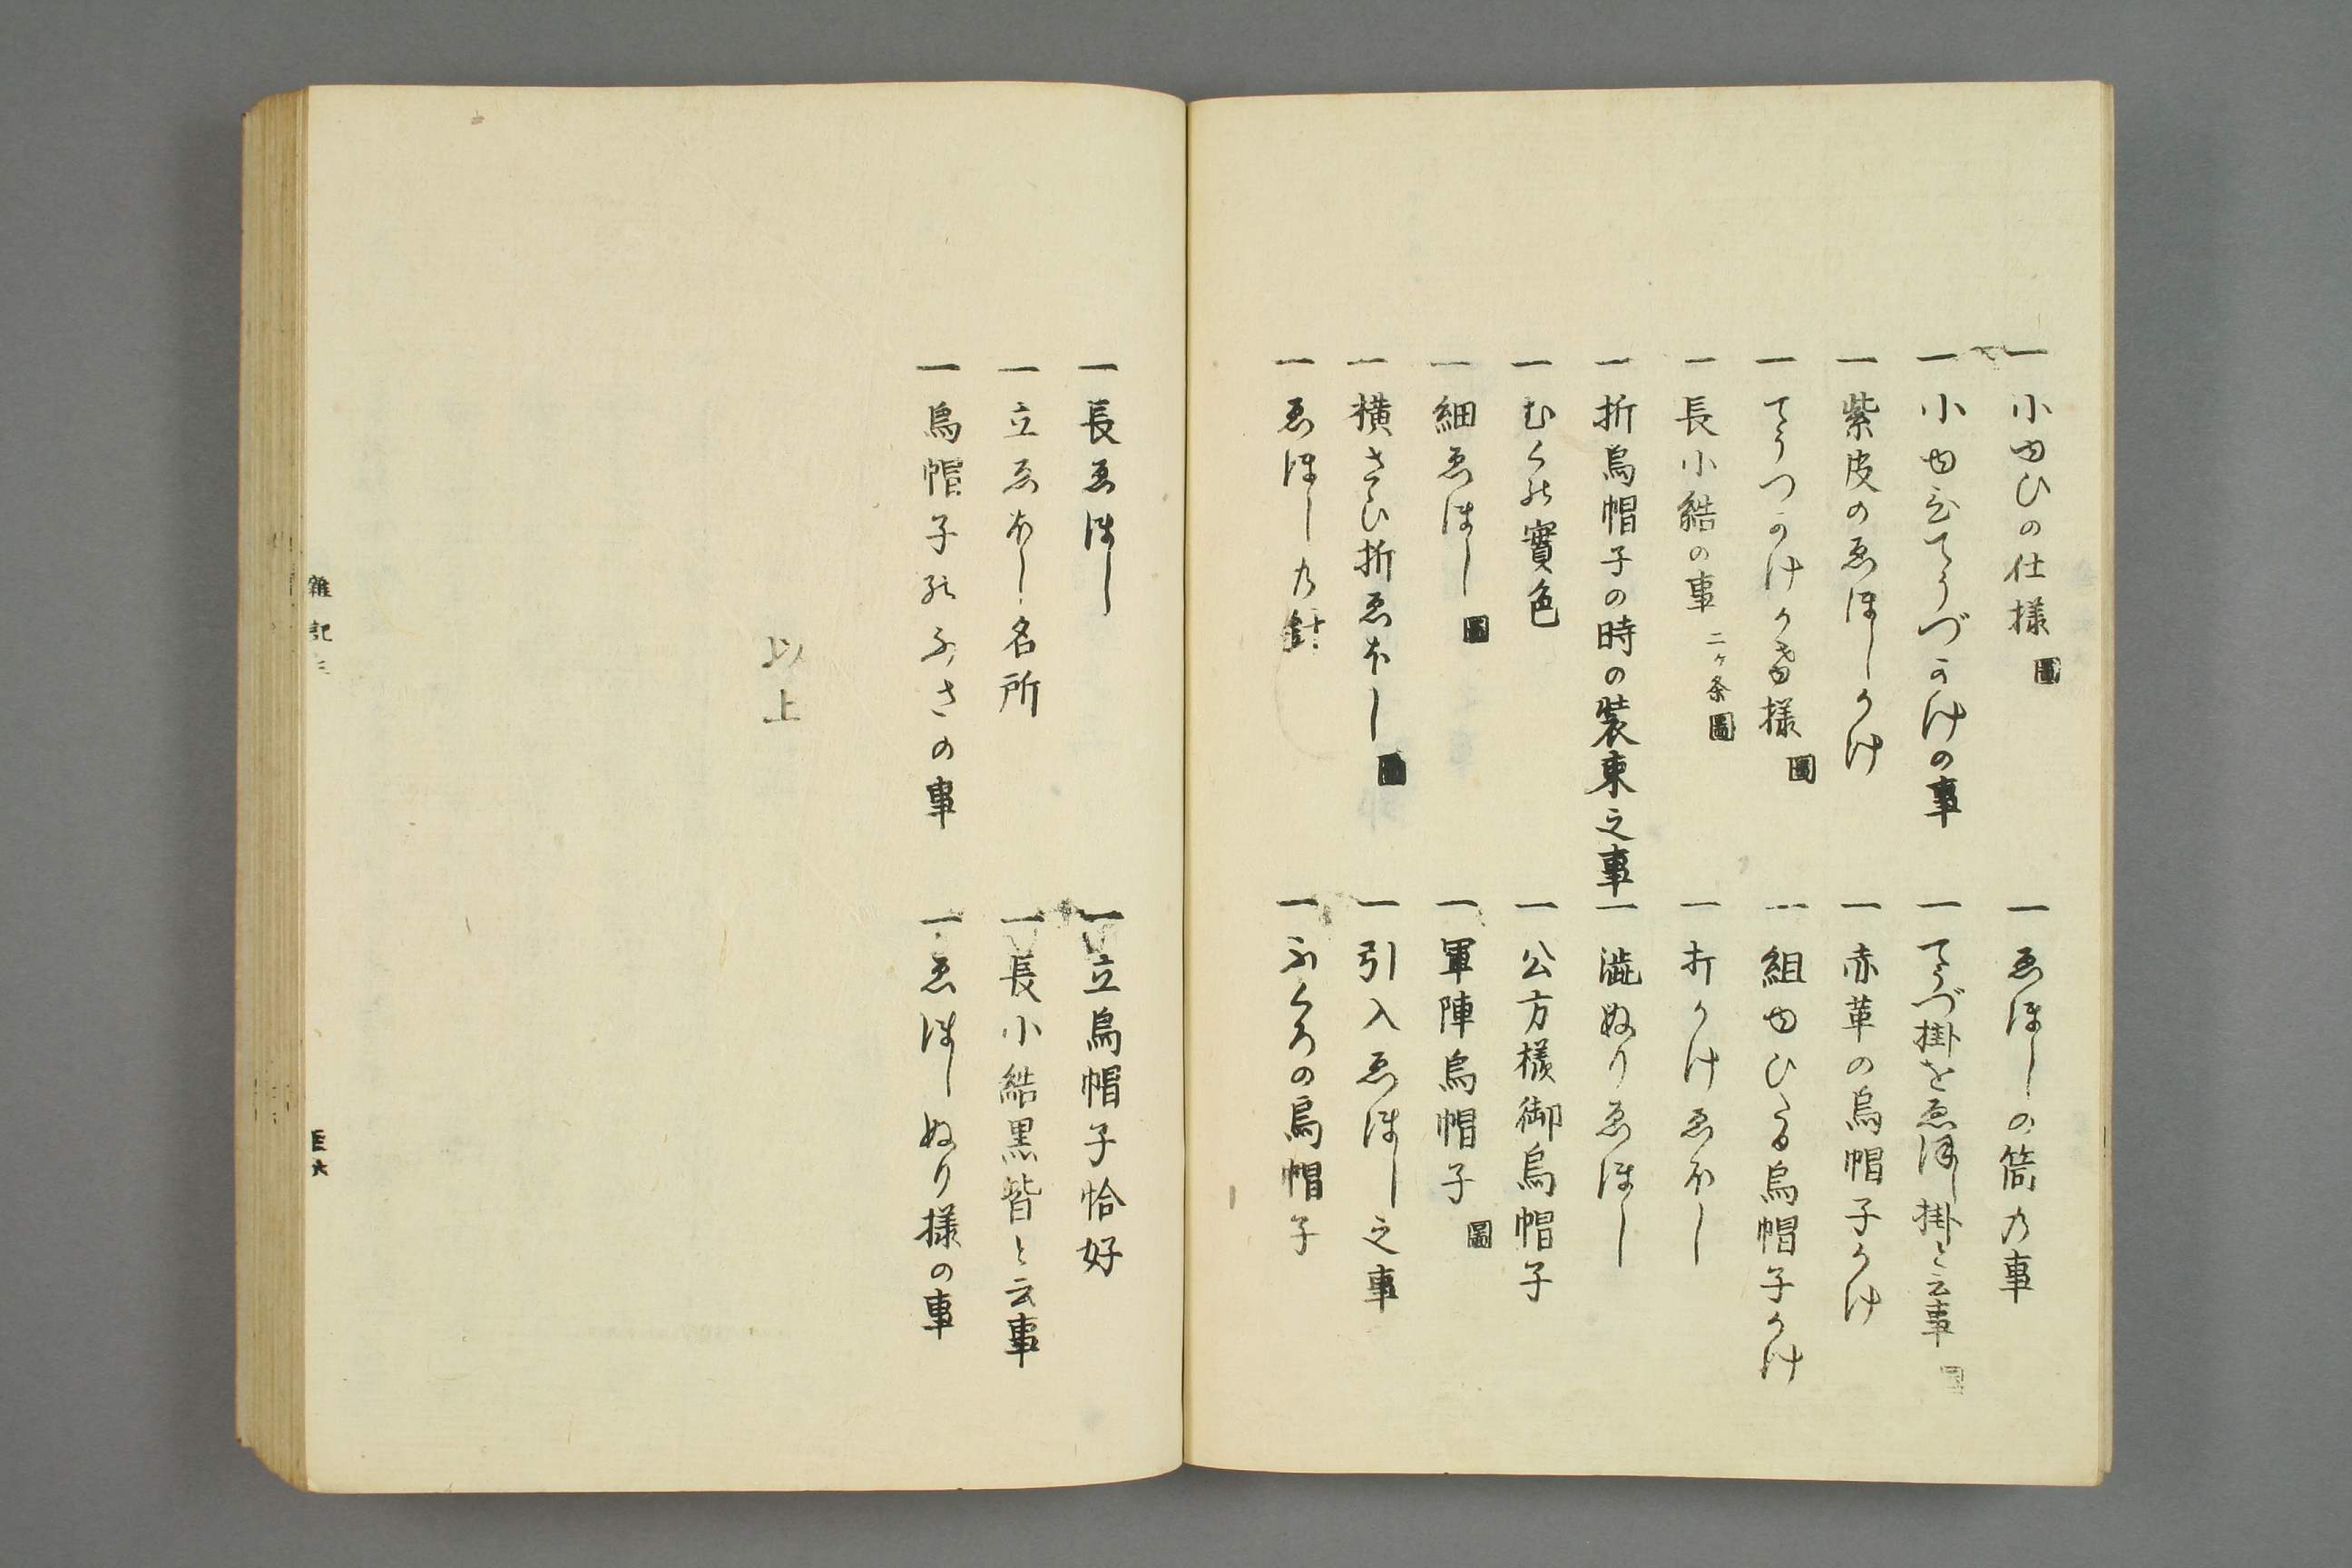 一 小ゆひの仕様 圖
一 ゑぼしの筒乃事
一 小ゆひてうづかけの事
一 てうづ掛をゑぼし掛と云事 圖
一 紫皮のゑぼしかけ
一 赤革の烏帽子かけ
一 てうつかけかけ様 圖
一 組ゆひたる烏帽子かけ
一 長小結の事 二ヶ条圖
一 折かけゑぼし
一 折烏帽子の時の装束之事
一 澁ぬりゑぼし
一 むくの實色
一 公方様御烏帽子
一 細ゑぼし 圖
一 軍陣烏帽子 圖
一 横さひ折ゑほし 圖
一 引入ゑぼし之事
一 ゑぼし乃針
一 ふくろの烏帽子
一 長ゑぼし
一 立烏帽子恰好
一 立ゑほし名所
一 長小結黒皆と云事
一 烏帽子のふさの事
一 ゑぼしぬり様の事
以上
雜記三